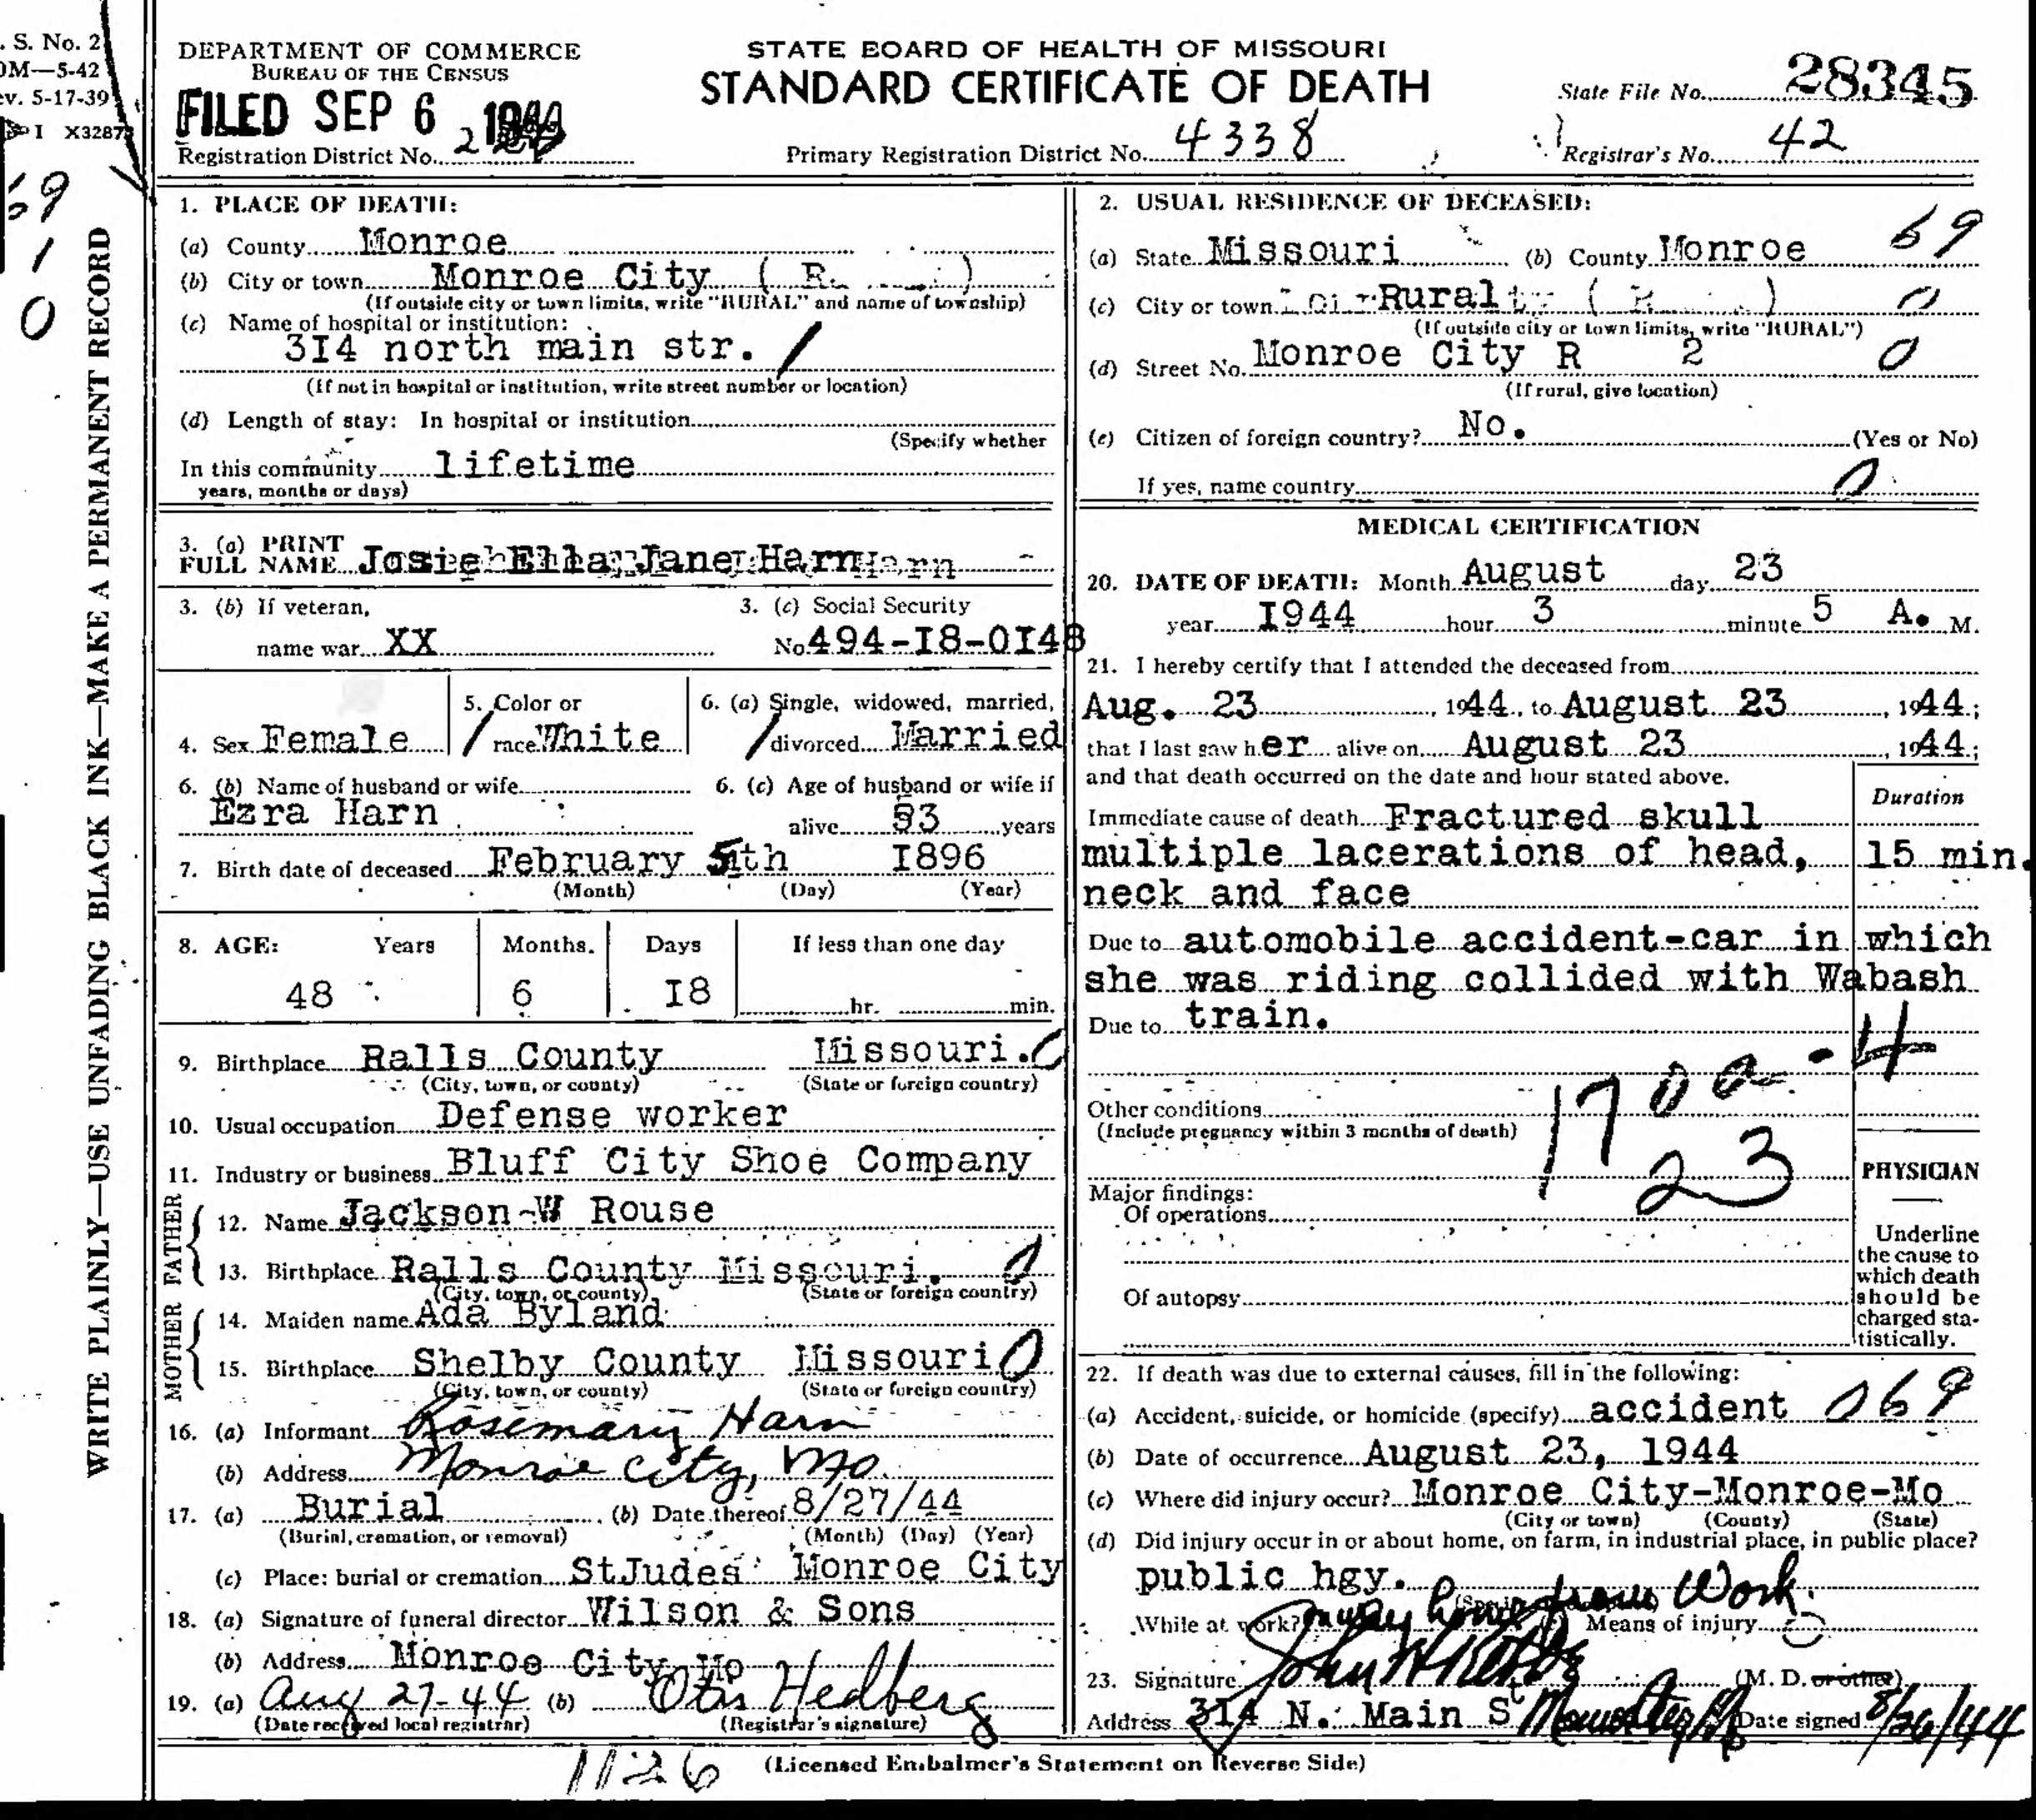 . S. No. 2
0M—5-42
ev. 5-17-39
I X32873
69
1
0
WRITE PLAINLY—USE UNFADING BLACK INK—MAKE A PERMANENT RECORD
DEPARTMENT OF COMMERCE
BUREAU OF THE CENSUS
FILED SEP 6
Registration District No.
STATE BOARD OF HEALTH OF MISSOURI
STANDARD CERTIFICATE OF DEATH
Primary Registration District No. 4338
State File No. 28345
Registrar's No. 42
1. PLACE OF DEATH:
(a) County Monroe
(b) City or town Monroe City ( R. )
(If outside city or town limits, write "RURAL" and name of township)
(c) Name of hospital or institution:
3I4 north main str. /
(If not in hospital or institution, write street number or location)
(d) Length of stay: In hospital or institution
(Specify whether
In this community lifetime
years, months or days)
3. (a) PRINT
FULL NAME Josie Ella Jane Harn
3. (b) If veteran,
name war XX
3. (c) Social Security
No 494-I8-0I48
4. Sex Female
5. Color or
race White
6. (a) Single, widowed, married,
divorced Married
6. (b) Name of husband or wife
Ezra Harn
6. (c) Age of husband or wife if
alive 53 years
7. Birth date of deceased February 5th I896
(Month) (Day) (Year)
8. AGE: Years Months. Days If less than one day
48 6 I8 hr. min.
9. Birthplace Ralls County Missouri. 0
(City, town, or county) (State or foreign country)
10. Usual occupation Defense worker
11. Industry or business Bluff City Shoe Company
FATHER
12. Name Jackson-W Rouse
13. Birthplace Ralls County Missouri. 0
(City, town, or county) (State or foreign country)
MOTHER
14. Maiden name Ada Byland
15. Birthplace Shelby County Missouri 0
(City, town, or county) (State or foreign country)
16. (a) Informant Rosemary Harn
(b) Address Monroe City, Mo.
17. (a) Burial (b) Date thereof 8/27/44
(Burial, cremation, or removal) (Month) (Day) (Year)
(c) Place: burial or cremation StJudes Monroe City
18. (a) Signature of funeral director Wilson & Sons
(b) Address Monroe City Mo
19. (a) Aug 27-44 (b) Otis Hedberg
(Date received local registrar) (Registrar's signature)
2. USUAL RESIDENCE OF DECEASED:
69
(a) State Missouri (b) County Monroe
(c) City or town Rural 0
(If outside city or town limits, write "RURAL")
(d) Street No. Monroe City R 2 0
(If rural, give location)
(e) Citizen of foreign country? No. (Yes or No)
If yes, name country 0
MEDICAL CERTIFICATION
20. DATE OF DEATH: Month August day 23
year I944 hour 3 minute 5 A. M.
21. I hereby certify that I attended the deceased from
Aug. 23, 1944, to August 23, 1944;
that I last saw her alive on August 23, 1944;
and that death occurred on the date and hour stated above.
Duration
Immediate cause of death Fractured skull
multiple lacerations of head, 15 min.
neck and face
Due to automobile accident-car in which
she was riding collided with Wabash
Due to train.
170a-4
23
Other conditions
(Include pregnancy within 3 months of death)
PHYSICIAN
Major findings:
Of operations
Of autopsy
Underline
the cause to
which death
should be
charged sta-
tistically.
22. If death was due to external causes, fill in the following:
(a) Accident, suicide, or homicide (specify) accident 069
(b) Date of occurrence August 23, 1944
(c) Where did injury occur? Monroe City-Monroe-Mo
(City or town) (County) (State)
(d) Did injury occur in or about home, on farm, in industrial place, in public place?
public hgy.
While at work? on way home from Work. Means of injury
23. Signature John (M. D. or other)
Address 314 N. Main St Monroe City Mo Date signed 8/26/44
1126
(Licensed Embalmer's Statement on Reverse Side)